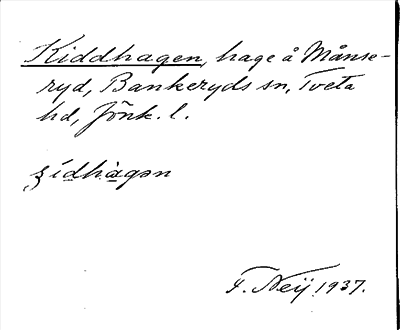 Kiddhagen, hage å Månse-
ryd, Bankeryds sn, Tveta
hd, Jönk. l.
ʂídhàgən
F. Neij 1937.